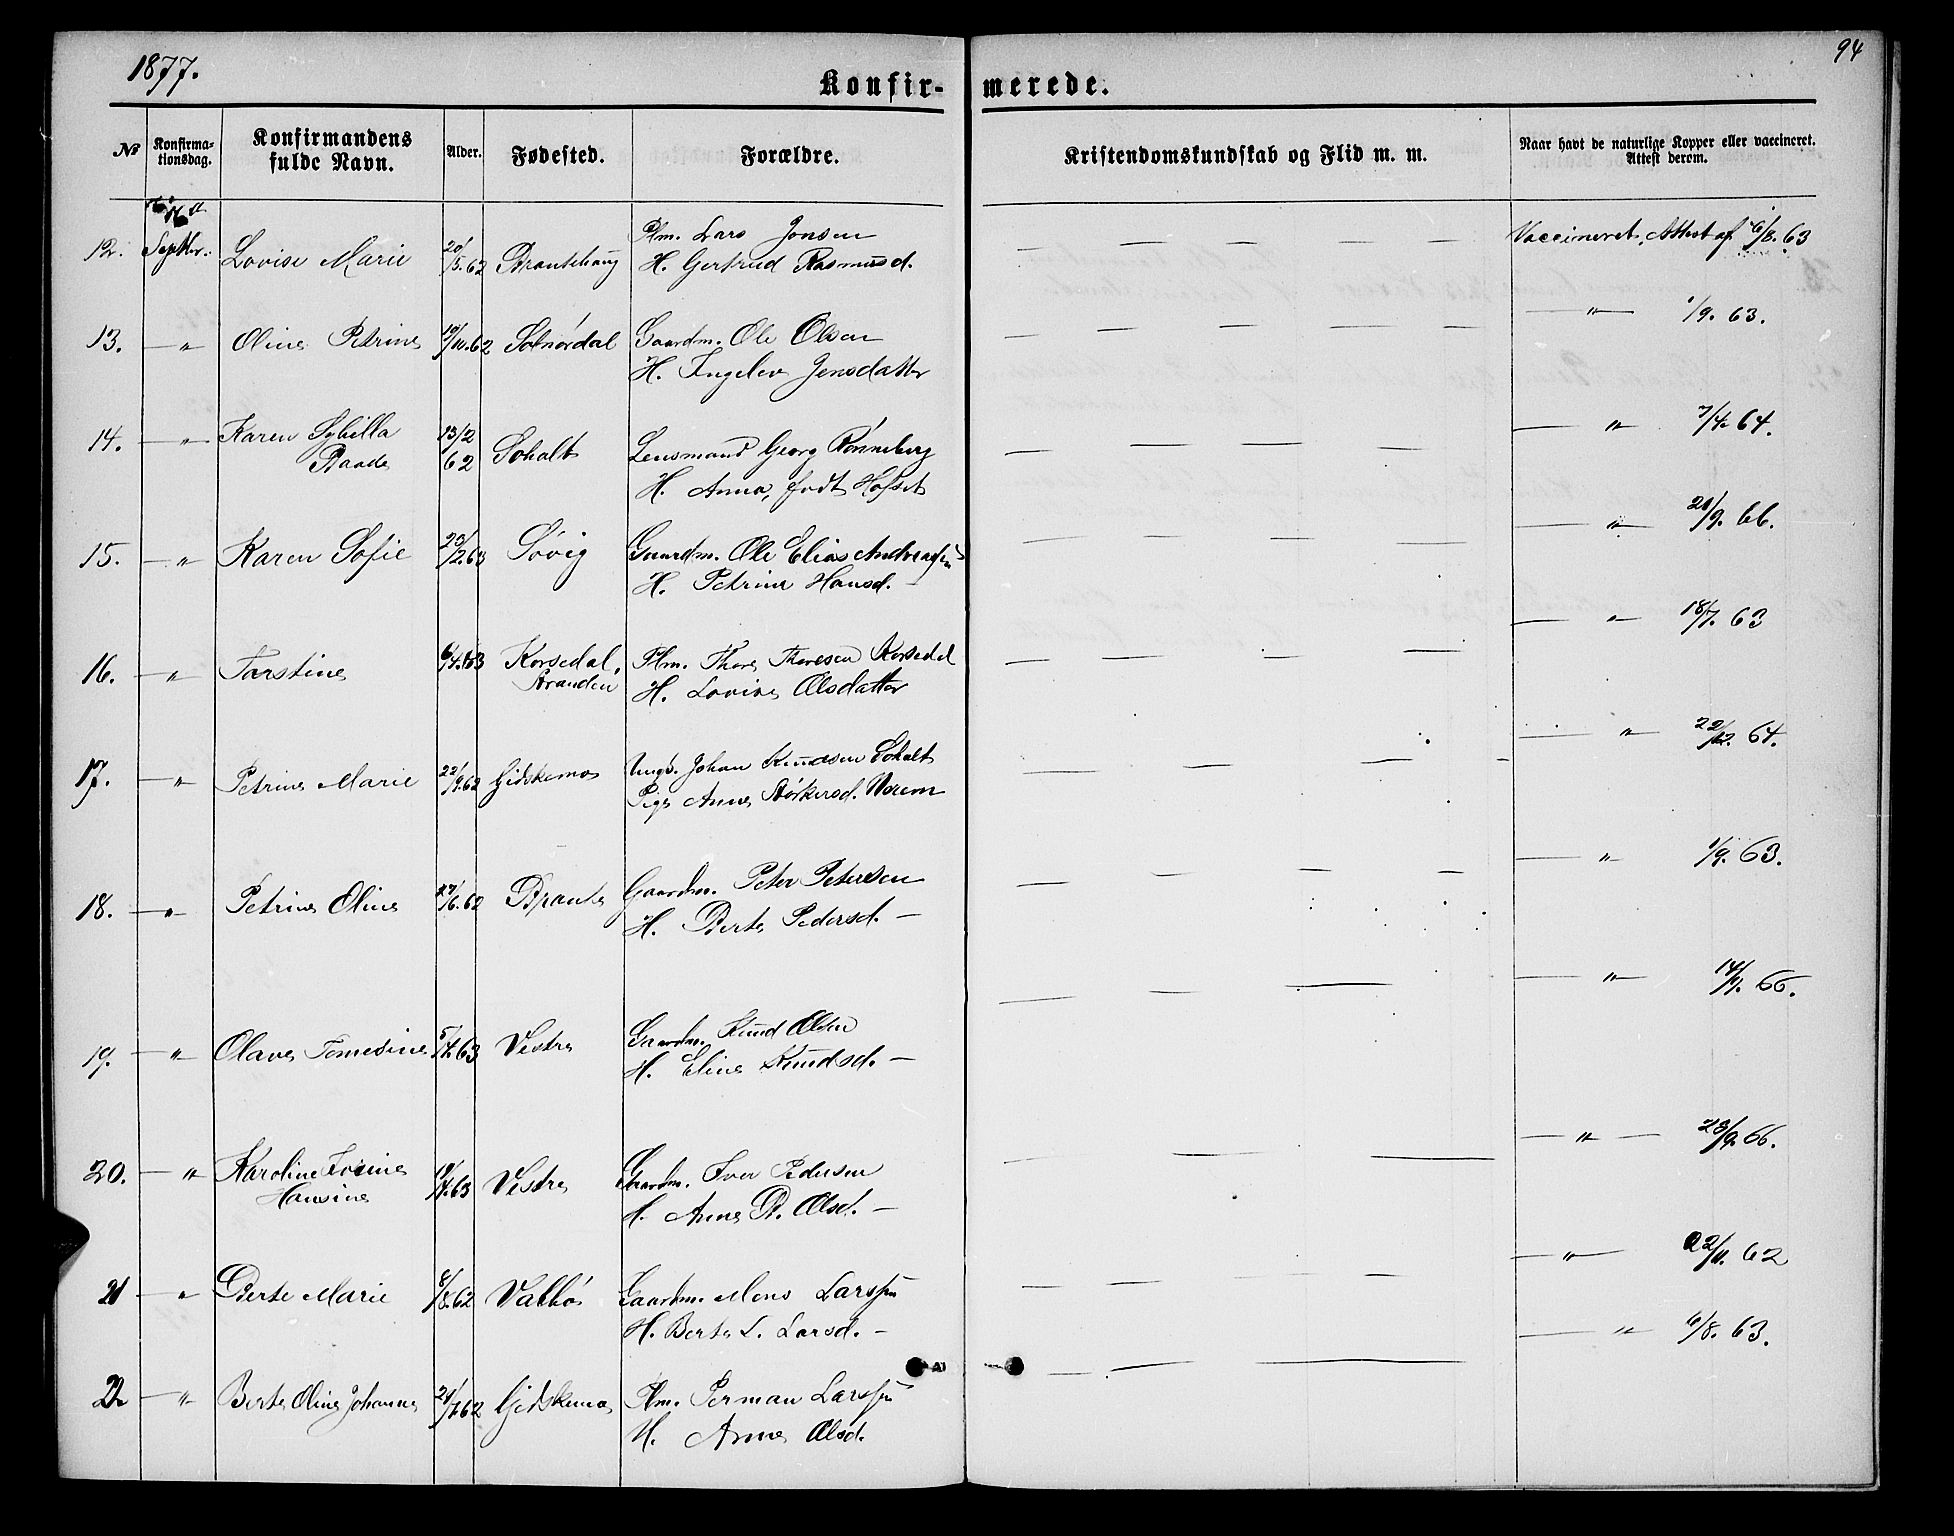 1877.
94
Konfir-
merede.
No
Konfirma-
tionsdag.
Konfirmandens
fulde Navn.
Alder.
Fødested.
Forældre.
Kristendomskundskab og Flid m. m.
Naar havt de naturlige Kopper eller vaccineret.
Attest derom.
16
12. Septbr. Lovise Marie 20/5.62 Plm. Lars Jonsen Vaccineret, Attest af 6/8.63
H. Gertrud Rasmusd.
13. — „ Oline Petrine 19/10.62 Solnørdal Gaardm. Ole Olsen — „ — 1/9. 63.
H. Ingelev Jensdatter
14. — „ — Karen Sybilla 13/2 — „ — 7/4. 64.
62 Soholt Lensmand Georg Rønneberg
H. Anna, født Hofset
15. — „ Karen Sofie 20/2.63 Søvig Gaardm. Ole Elias Andreassen — „ — 21/9. 66.
H. Petrine Hansd. —
16. — „ Torstine 6/4.63 Korsedal, Plm. Thore Thoresen Korsedal — „ — 18/7. 63
Stranden H. Lovise Olsdatter
17. — „ Petrine Marie 22/9.62 Gidskemo Ungk. Johan Knudsen Soholt — „ — 22/12. 64.
Pige Anne Størkersd.
18. — „ Petrine Oline 27/6.62 Gaardm. Peter Petersen — „ — 1/9. 63.
H. Berte Pedersd. —
19. — „ Olave Tomesine 5/4.63 Vestre Gaardm. Knud Olsen — „ — 14/9. 66.
H. Eline Knudsd. —
20. — „ Karoline 19/4.63 Vestre Gaardm. Iver Pedersen — „ — 28/9. 66.
Hansine H. Anne P. Olsd. —
21 — „ Berte Marie 8/8.62 Valbø Gaardm. Mons Larssen — „ — 22/11. 62
H. Berte L. Larsd. —
22 — „ Berte Oline Johanne 24/7.62 Gidskemo Plm. Perman Larssen — „ — 6/8. 63.
H. Anne Olsd.